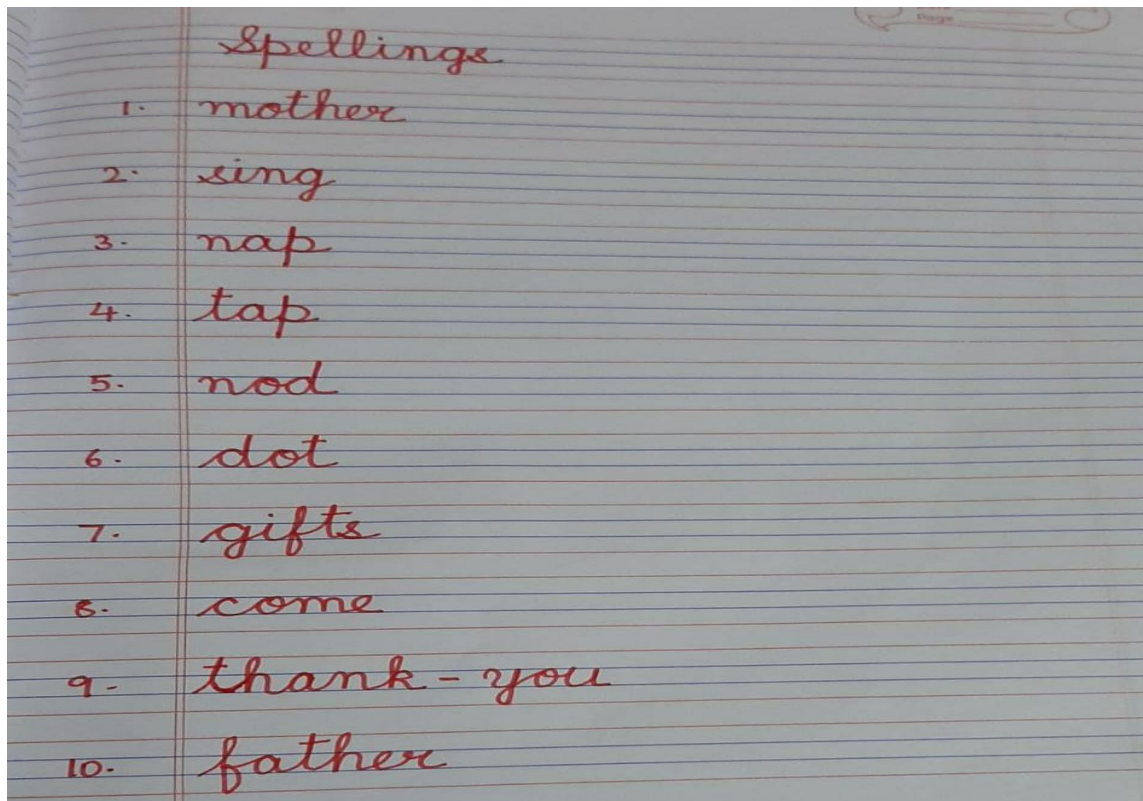 Page
Spellings
1. mother
2. sing
3. nap
4. tap
5. nod
6. dot
7. gifts
8. come
9- thank-you
10. father